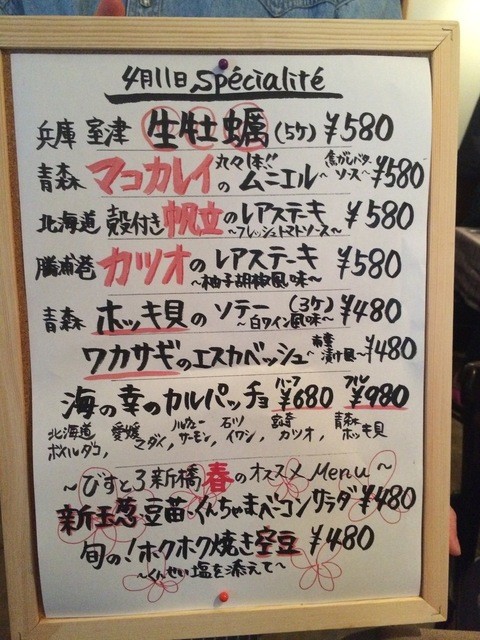 4月11日 Spécialité
兵庫 室津 生牡蠣(5ケ) ¥580
青森 マコカレイ 丸々1本!!の ムニエル ~焦がしバターソース~ ¥580
北海道 殻付き 帆立のレアステーキ ¥580
~フレッシュトマトソース~
勝浦港 カツオのレアステーキ ¥580
~柚子胡椒風味~
青森 ホッキ貝の ソテー (3ケ) ¥480
~白ワイン風味~
ワカサギのエスカベッシュ ~南蛮漬け風~ ¥480
海の幸のカルパッチョ ハーフ ¥680 フル ¥980
北海道 ボイルダコ, 愛媛 マダイ, ノルウェー サーモン, 石川 イワシ, 宮崎 カツオ, 青森 ホッキ貝
~びすとろ新橋 春のオススメ Menu~
新玉葱・豆苗・くんちゃまベーコンサラダ ¥480
旬の!ホクホク焼き空豆 ¥480
~くんせい塩を添えて~